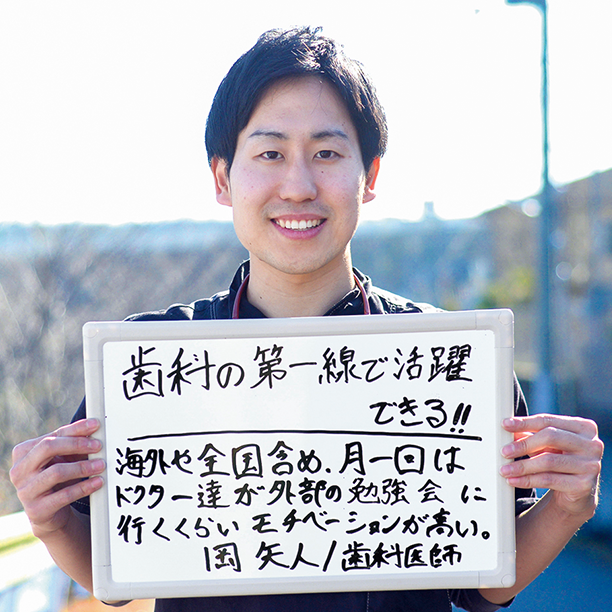 歯科の第一線で活躍
できる!!
海外や全国含め、月一回は
ドクター達が外部の勉強会に
行くくらいモチベーションが高い。
岡 矢人/歯科医師